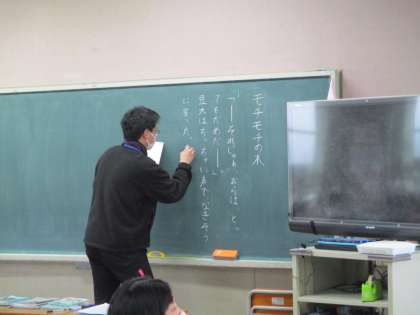 モチモチの木
「――それじゃぁ、おらは、と、
てもだめだ――」
豆太は、ちっちゃい声で、なきそう
に言った。